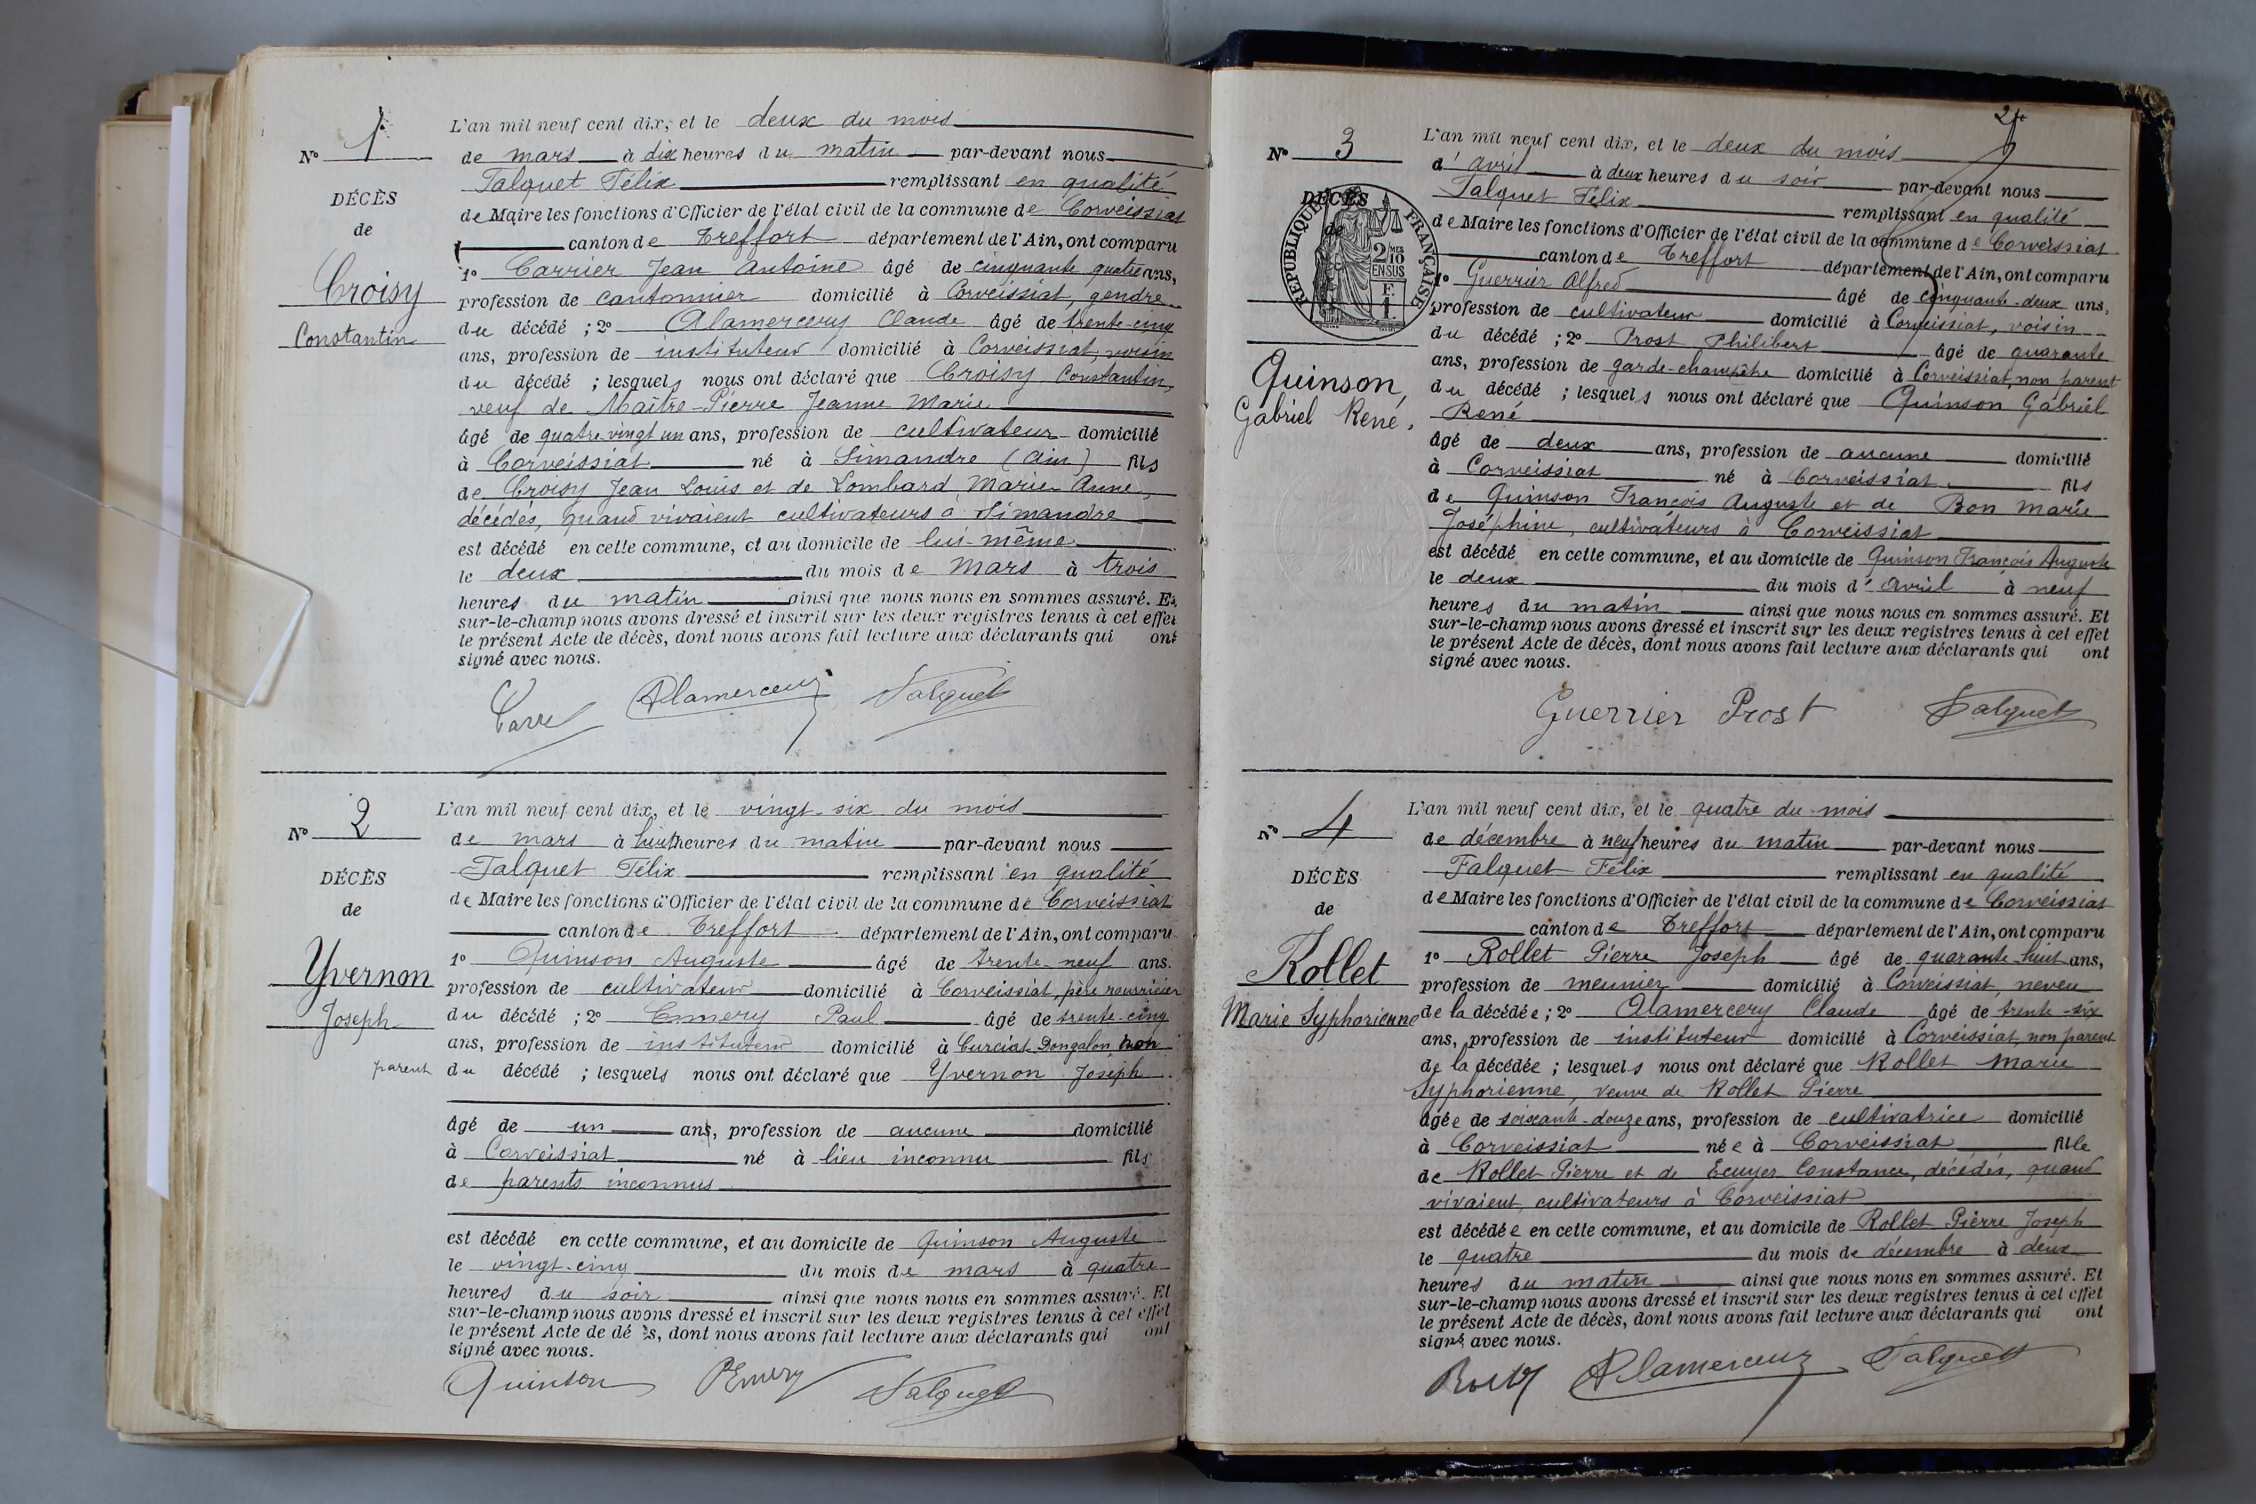 N° 1
DÉCÈS
de
Croisy
Constantin
L'an mil neuf cent dix, et le deux du mois
de mars à dix heures du matin par-devant nous
Falquet Félix remplissant en qualité
de Maire les fonctions d'Officier de l'état civil de la commune de Corveissiat
canton de Treffort département de l'Ain, ont comparu
1° Carrier Jean Antoine âgé de cinquante quatre ans,
profession de cantonnier domicilié à Corveissiat, gendre
du décédé ; 2° Alamercery Claude âgé de trente-cinq
ans, profession de instituteur domicilié à Corveissiat, voisin
du décédé ; lesquels nous ont déclaré que Croisy Constantin,
veuf de Maître-Pierre Jeanne Marie
âgé de quatre vingt un ans, profession de cultivateur domicilié
à Corveissiat né à Simandre (Ain) fils
de Croisy Jean Louis et de Lombard Marie Anne,
décédés, quand vivaient cultivateurs à Simandre
est décédé en cette commune, et au domicile de lui-même
le deux du mois de Mars à trois
heures du matin ainsi que nous nous en sommes assuré. Et
sur-le-champ nous avons dressé et inscrit sur les deux registres tenus à cet effet
le présent Acte de décès, dont nous avons fait lecture aux déclarants qui ont
signé avec nous.
Carre Alamercery Falquet
N° 2
DÉCÈS
de
Yvernon
Joseph
L'an mil neuf cent dix, et le vingt-six du mois
de mars à huit heures du matin par-devant nous
Falquet Félix remplissant en qualité
de Maire les fonctions d'Officier de l'état civil de la commune de Corveissiat
canton de Treffort département de l'Ain, ont comparu
1° Quinson Auguste âgé de trente-neuf ans.
profession de cultivateur domicilié à Corveissiat, père nourricier
du décédé ; 2° Emery Paul âgé de trente-cinq
ans, profession de instituteur domicilié à Curciat-Dongalon, non
parent du décédé ; lesquels nous ont déclaré que Yvernon Joseph
âgé de un ans, profession de aucune domicilié
à Corveissiat né à lieu inconnu fils
de parents inconnus
est décédé en cette commune, et au domicile de Quinson Auguste
le vingt-cinq du mois de mars à quatre
heures du soir ainsi que nous nous en sommes assuré. Et
sur-le-champ nous avons dressé et inscrit sur les deux registres tenus à cet effet
le présent Acte de dé s, dont nous avons fait lecture aux déclarants qui ont
signé avec nous.
Quinson PEmery Falquet
2
N° 3
DÉCÈS
de
RÉPUBLIQUE FRANÇAISE
2 MES
10
EN SUS
F.
1.
Quinson,
Gabriel René.
L'an mil neuf cent dix, et le deux du mois
d'avril à deux heures du soir par-devant nous
Falquet Félix remplissant en qualité
de Maire les fonctions d'Officier de l'état civil de la commune de Corveissiat
canton de Treffort département de l'Ain, ont comparu
1° Guerrier Alfred âgé de cinquante-deux ans,
profession de cultivateur domicilié à Corveissiat, voisin
du décédé ; 2° Prost Philibert âgé de quarante
ans, profession de garde-champêtre domicilié à Corveissiat, non parent
du décédé ; lesquels nous ont déclaré que Quinson Gabriel
René
âgé de deux ans, profession de aucune domicilié
à Corveissiat né à Corveissiat fils
de Quinson François Auguste et de Bon Marie
Joséphine, cultivateurs à Corveissiat
est décédé en cette commune, et au domicile de Quinson François Auguste
le deux du mois d'avril à neuf
heures du matin ainsi que nous nous en sommes assuré. Et
sur-le-champ nous avons dressé et inscrit sur les deux registres tenus à cet effet
le présent Acte de décès, dont nous avons fait lecture aux déclarants qui ont
signé avec nous.
Guerrier Prost Falquet
N° 4
DÉCÈS
de
Rollet
Marie Syphorienne
L'an mil neuf cent dix, et le quatre du mois
de décembre à neuf heures du matin par-devant nous
Falquet Félix remplissant en qualité
de Maire les fonctions d'Officier de l'état civil de la commune de Corveissiat
canton de Treffort département de l'Ain, ont comparu
1° Rollet Pierre Joseph âgé de quarante-huit ans,
profession de meunier domicilié à Corveissiat, neveu
de la décédée ; 2° Alamercery Claude âgé de trente-six
ans, profession de instituteur domicilié à Corveissiat, non parent
de la décédée ; lesquels nous ont déclaré que Rollet Marie
Syphorienne, veuve de Rollet Pierre
âgée de soixante-douze ans, profession de cultivatrice domicilié
à Corveissiat née à Corveissiat fille
de Rollet Pierre et de Ecuyer Constance, décédés, quand
vivaient, cultivateurs à Corveissiat
est décédée en cette commune, et au domicile de Rollet Pierre Joseph
le quatre du mois de décembre à deux
heures du matin ainsi que nous nous en sommes assuré. Et
sur-le-champ nous avons dressé et inscrit sur les deux registres tenus à cet effet
le présent Acte de décès, dont nous avons fait lecture aux déclarants qui ont
signé avec nous.
Alamercery Falquet